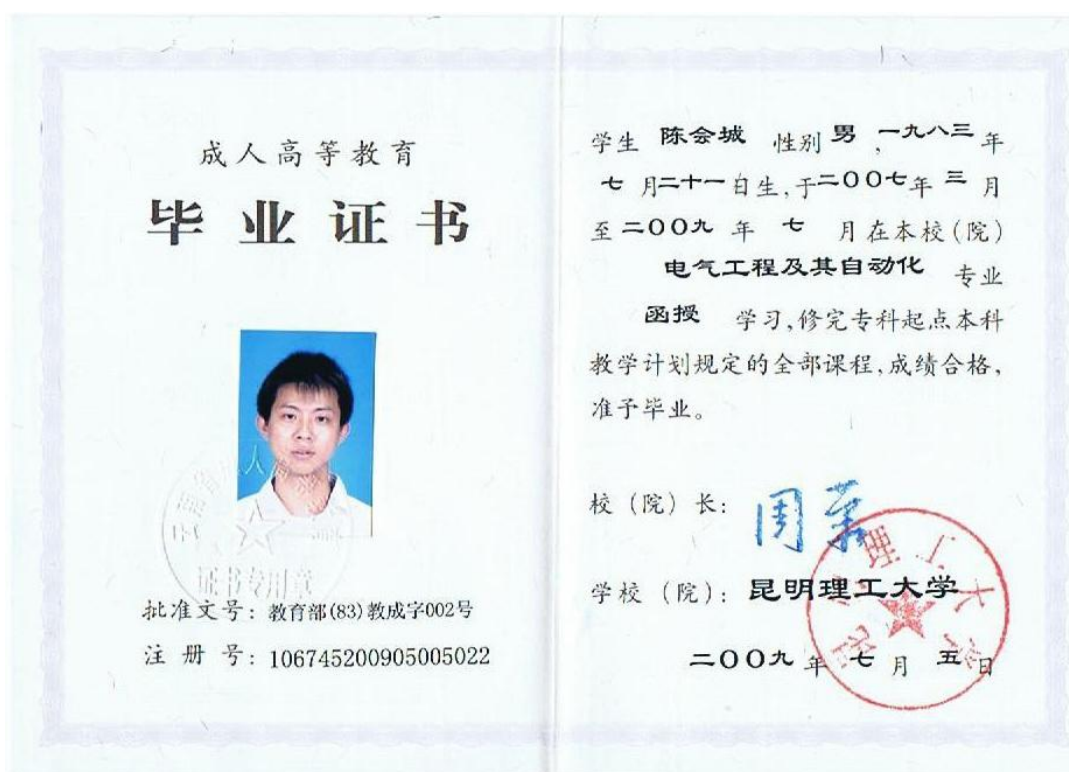 成人高等教育
毕业证书
证书专用章
批准文号：教育部(83)教成字002号
注册号：106745200905005022
学生 陈会城 性别 男，一九八三年
七月二十一日生，于二00七年三月
至二00九年七月在本校(院)
电气工程及其自动化 专业
函授 学习，修完专科起点本科
教学计划规定的全部课程，成绩合格，
准予毕业。
校（院）长：周荣
学校（院）：昆明理工大学
二00九年七月五日
昆明理工大学